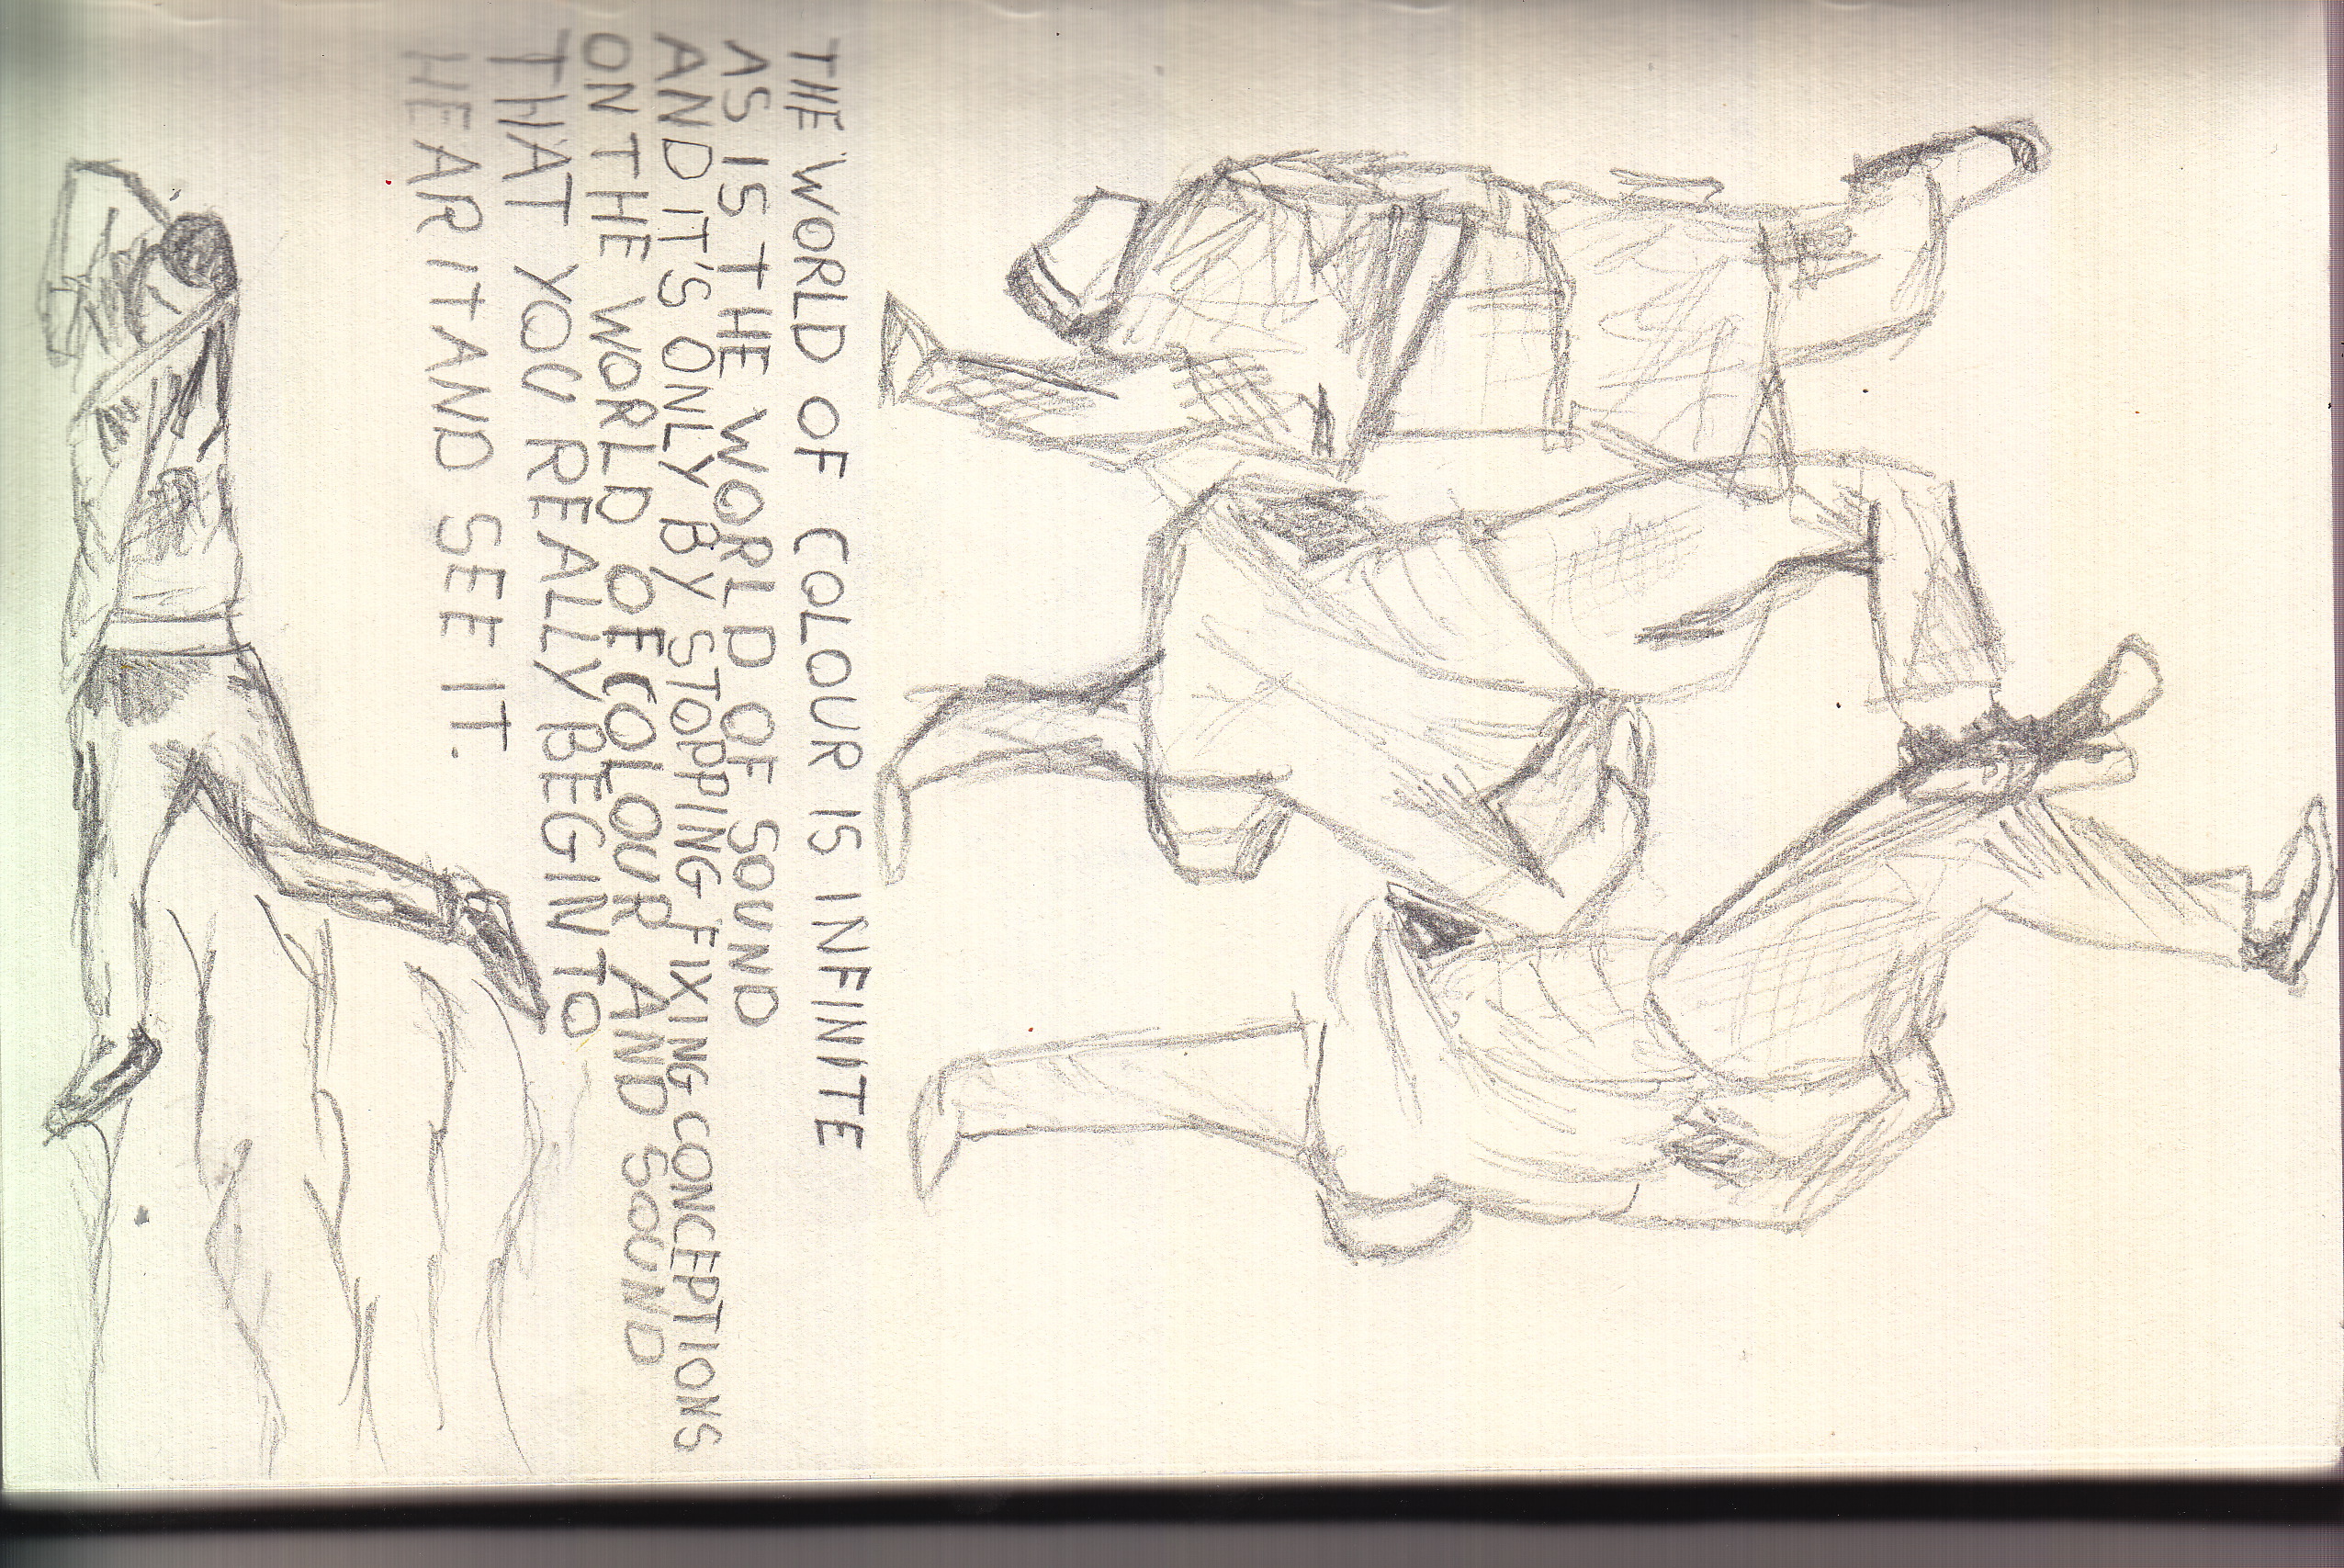 THE WORLD OF COLOUR IS INFINITE
AS IS THE WORLD OF SOUND
AND IT'S ONLY BY STOPPING FIXING CONCEPTIONS
ON THE WORLD OF COLOUR AND SOUND
THAT YOU REALLY BEGIN TO
HEAR IT AND SEE IT.